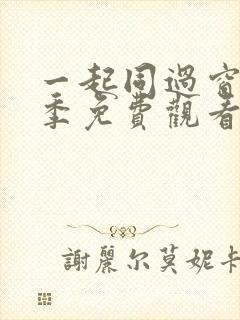 一起同過窗
季免費觀看
謝麗尔莫妮卡